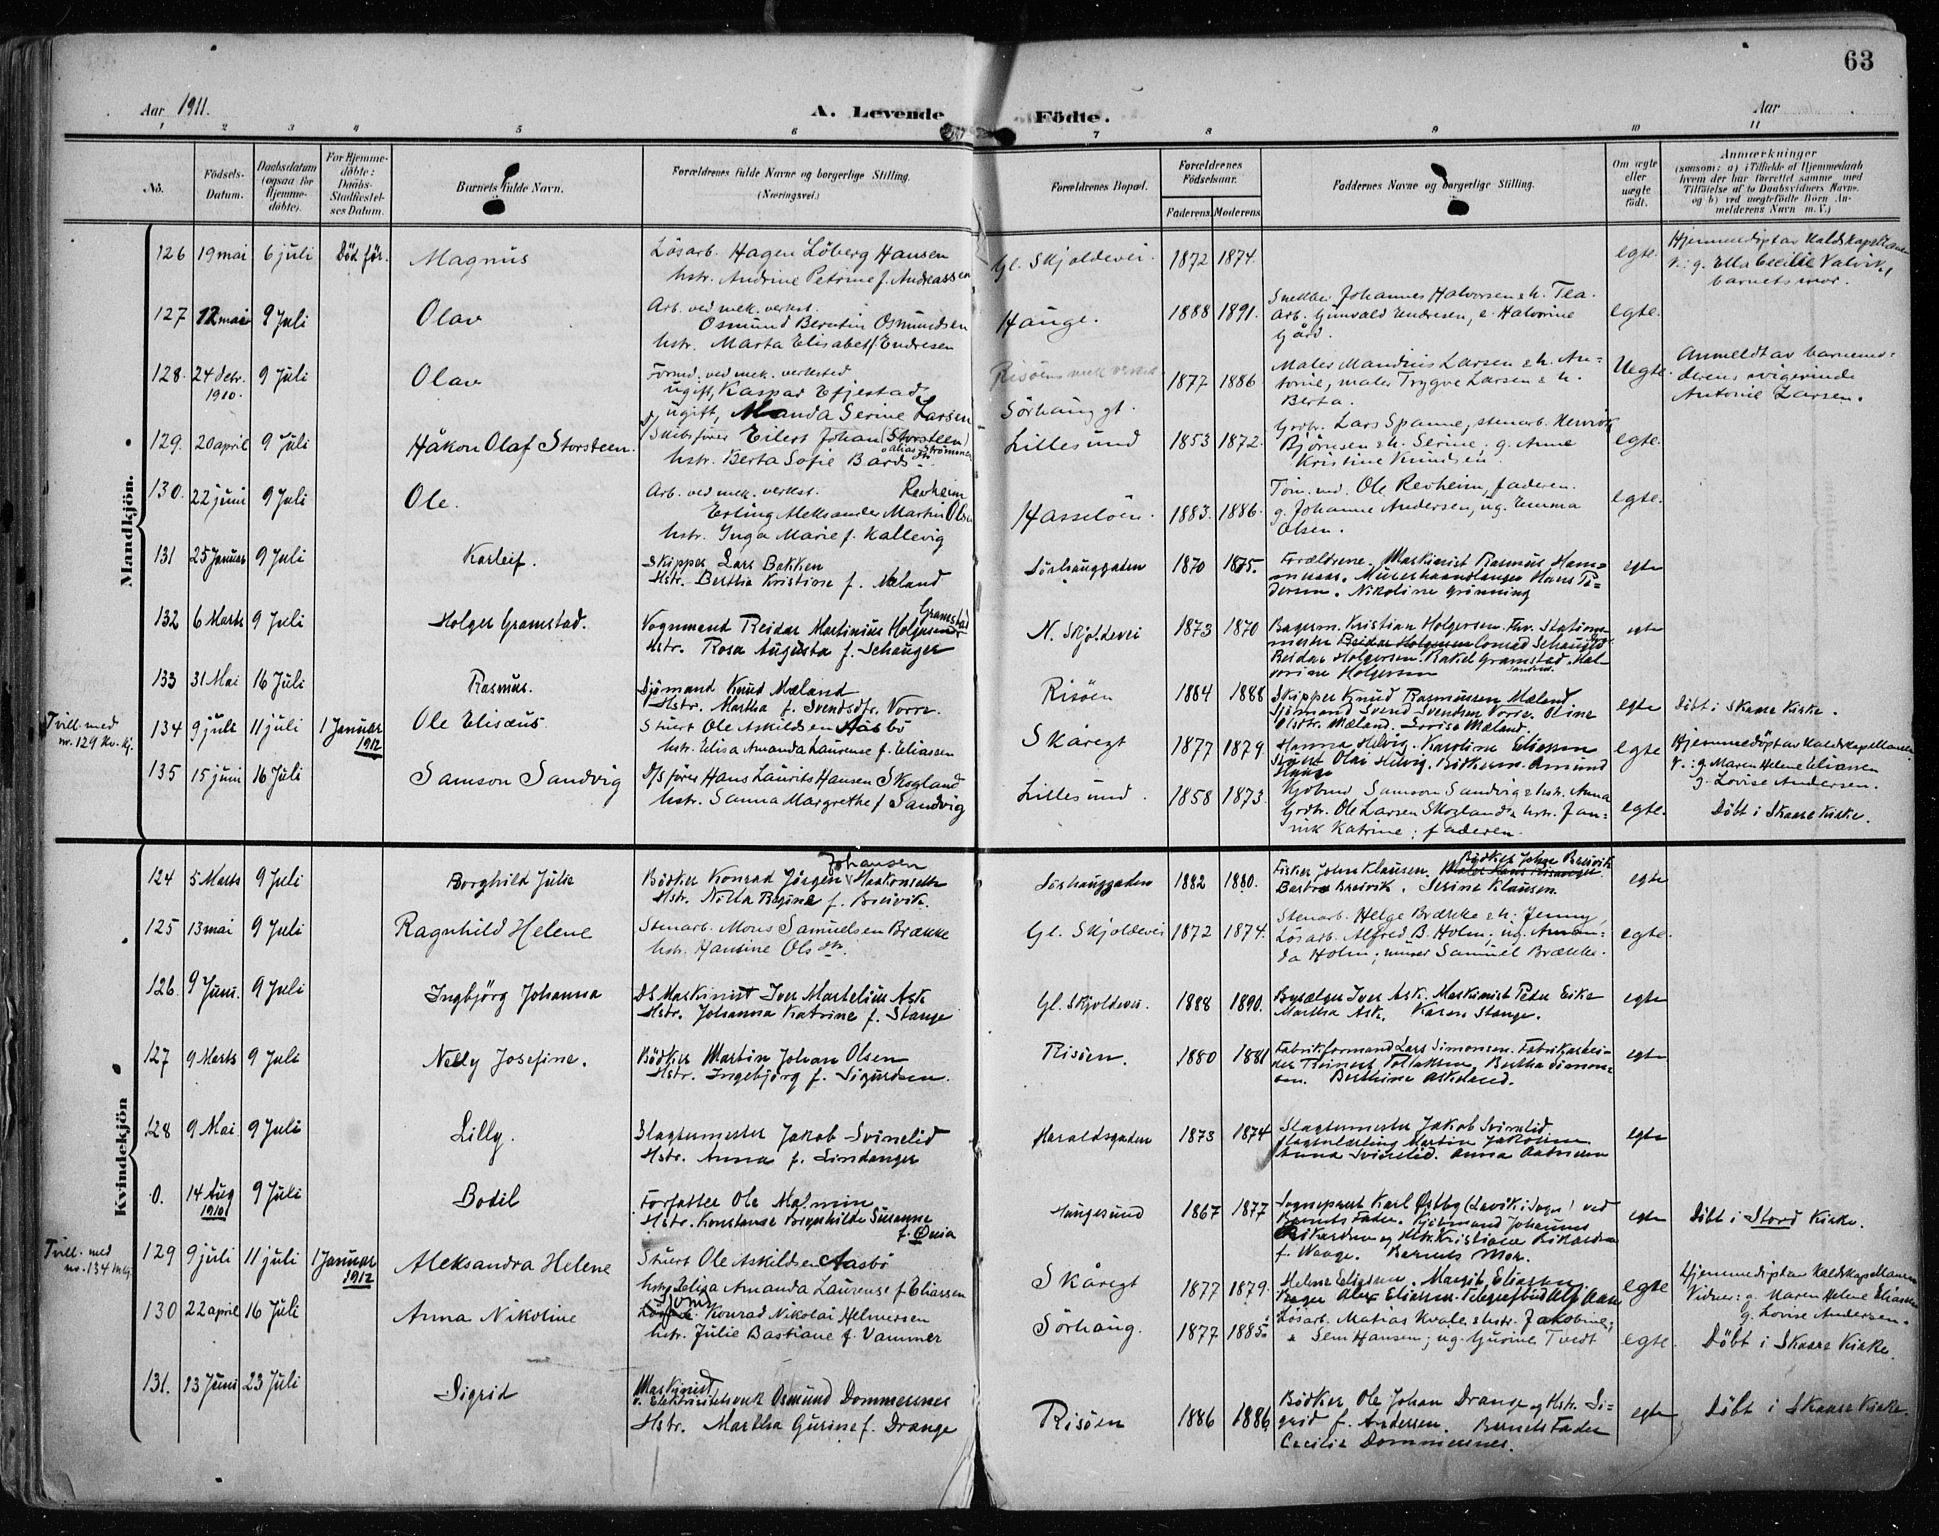 63
Aar 1911.
A. Levende Fødte.
Aar
1 2 3 4 5 6 7 8 9 10 11
No.
Fødsels-Datum.
Daabsdatum (ogsaa for Hjemmedøbte).
For Hjemmedøbte: Daabs-Stadfæstelses Datum.
Barnets fulde Navn.
Forældrenes fulde Navne og borgerlige Stilling. (Næringsvei.)
Forældrenes Bopæl.
Forældrenes Fødselsaar.
Faderens. Moderens
Faddernes Navne og borgerlige Stilling.
Om ægte eller uægte født.
Anmærkninger
(saasom: a) i Tilfælde af Hjemmedaab
hvem der har forrettet samme med
Tilføielse af to Daabsvidners Navne.
og b) ved uægtefødte Børn Anmelderens Navn m. V.)
Mandkjön.
126 19 mai 6 juli Død før. Magnus
Løsarb. Hagen Løberg Hansen
hstr. Andrine Petrine f. Andreassen
Gl. Skjoldevei. 1872 1874. egte.
Hjemmedøpt av Kaldskapellanen
V.: g. Ella Cecilie Valvik,
barnets mor.
127 12 mai 9 Juli Olav
Arb. ved mek. verkst.
Osmund Berntin Osmundsen
hstr. Marta Elisabet f. Endresen
Hauge. 1888 1891.
Snekker Johannes Halvorsen & h. Tea.
Arb. Gunvald Endresen, e. Halvorine
Gård.
egte.
128. 24 debr. 1910. 9 Juli Olav
Formd. ved mek. verksted
ugift, Kaspar Efjestad
ugift, Manda Serine Larsen
Risøens mek verkst
Sørhauggt. 1877 1886
Maler Mandius Larsen & h. An-
tonie, maler Trygve Larsen & h.
Berta.
Uegte.
Anmeldt av barnemo-
derens svigerinde
Antonie Larsen.
129. 20 april 9 Juli Håkon Olaf Storsteen.
D/Skibsfører Eilert Johan (Storsteen)
alias Strømmen
hstr. Berta Sofie Bårdsdtr.
Lillesund 1853 1872.
Grdbr. Lars Spanne, stenarb. Henrik
Bjørnsen & h. Serine; g. Anne
Kristine Knudsen.
egte.
130. 22 juni 9 Juli Ole.
Arb. ved mek. verkst. Revheim
Erling Aleksander Martin Olsen
hstr. Inga Marie f. Kallevig
Hasseløen. 1883. 1886.
Tøm.md. Ole Revheim, faderen.
g. Johanne Andersen, ug. Emma
Olsen.
egte.
131 25 Januar 9 Juli Karleif.
Skipper Lars Bakken
Hstr. Bertha Kristine f. Mæland
Sørhauggaden 1870 1875.
Forældrene. Maskinist Rasmus
Murerhaandlanger Hans Pe-
dersen. Nikoline Grønning
egte
132 6 Marts 9 Juli Holger Gramstad.
Vognmand Reidar Martinius Holgersen Gramstad
Hstr. Rosa Augusta f. Schauger
N. Skjoldevei 1873 1870
Bagerm. Kristian Holgersen. Fhv. Stations-
mester Reidar Holgersen Conrad Schauger
Reidar Holgersen. Rakel Gramstad. Hal-
vorine Holgersen
egte
133 31 Mai 16 Juli Rasmus.
Sjömand Knud Mæland
Hstr. Martha f. Svendsdtr. Vorre.
Risöen 1884 1888
Skipper Knud Rasmussen Mæland
Sjömand Svend Svendsen Vorre. Oline
Olsdtr. Mæland. Lovise Mæland.
egte Döbt i Skaare Kirke.
Tvill. med
nr. 129 kv.kj.
134 9 juli 11 juli 1 Januar 1912 Ole Elisæus
Stuert Ole Askildsen Aasbö
hstr. Elisa Amanda Laurense f. Eliassen
Skåregt 1877 1879.
Hanna Helvig. Karoline Eliassen
Stuert Olai Helvig. Bödkerm. Amund
Hauge
egte
Hjemmedöpt av Kaldskapellanen
V.: g. Maren Helene Eliassen
g. Lovise Andersen.
135 15 juni 16 Juli Samson Sandvig
D/sfører Hans Laurits Hansen Skogland
hstr. Sanna Margrethe f. Sandvig
Lillesund. 1858 1873.
Kjøbmd Samson Sandvig & hstr. Anna
Grdbr. Ole Larsen Skogland & hstr. Jan-
nik Katrine; faderen.
egte. Döbt i Skaare Kirke.
Kvindekjön
124 5 Marts 9 Juli Borghild Julie
Bödker Konrad Jörgen Johansen
Hstr. Nilla Regine f. Breivik.
Sørhauggaden 1882 1880.
Fisker John Klausen. Bödker Johan Breivik
Bertra Breivik. Serine Klausen.
egte
125 13 mai 9 Juli Ragnhild Helene
Stenarb. Mons Samuelsen Brække
hstr. Hansine Olsdtr.
Gl. Skjoldevei 1872 1874.
Stenarb. Helge Brække & h. Jenny,
Løsarb. Alfred B. Holm; ug. Aman-
da Holm; murer Samuel Brække.
egte.
126. 9 Juni. 9 Juli Ingbjörg Johanna
DS Maskinist Iver Martelius Ask
Hstr. Johanna Katrine f. Stange
Gl. Skjoldevei. 1888 1890.
Byselger Iver Ask. Maskinist Peder Eike
Martha Ask. Karen Stange.
egte
127 9 Marts 9 Juli Nelly Josefine.
Bödker Martin Johan Olsen
Hstr. Ingebjörg f. Sigurdsen.
Risöen. 1880 1881
Fabrikformand Lars Simonsen. Fabrikarbei-
der Reinert Tollaksen. Bertha Simon-
sen. Berthine Askeland.
egte
128 9 Mai 9 Juli Lilly.
Slagtermester Jakob Svinelid
Hstr. Anna f. Lindanger
Haraldsgaden 1873 1874
Slagtermester Jakob Svinelid.
Slagterlærling Martin Jakobsen
Anna Svinelid. Anna Aatneren
egte
0. 14 Aug 1910 9 Juli Bodil
Forfatter Ole Malmin
Hstr. Konstanse Borghilde Susanne
f. Össia
Haugesund 1867 1877
Sogneprest Karl Østby (Lavik i Sogn) ved
Barnets Fader. Kjöbmand Johannes
Rikardsen og Hstr. Kristiane Rikardsen
f. Waage. Barnets Mor.
egte Döbt i Stord Kirke.
Tvill. med
nr. 134 mkj.
129 9 juli 11 juli 1 Januar 1912 Aleksandra Helene
Stuert Ole Askildsen Aasbö
hstr. Elisa Amanda Laurense f. Eliassen
Skåregt 1877 1879.
Helene Eliassen. Margit Eliassen
Bager Alex Eliassen. Telegrafbud Alf Aase
egte
Hjemmedöpt av Kaldskapellanen
Vidner: g. Maren Helene Eliassen
g. Lovise Andersen.
130 22 april 16 Juli Anna Nikoline
Konrad Nikolai Helmersen
hstr. Julie Bastiane f. Vammer
Sørhaug. 1877 1885.
Løsarb. Matias Kvale & hstr. Jakobine;
& Sem Hansen; ug. Gurine Tvedt
egte. Döbt i Skaare Kirke.
131. 13 Juni 23 Juli Sigrid
Maskinist
v. Elektricitetsverk Osmund Dommersnes
Hstr. Martha Gurine f. Drange
Risöen 1886 1886
Bödker Ole Johan Drange og Hstr. Si-
grid f. Andersen. Barnets Fader
Cecilie Dommersnes.
egte Döbt i Skaare Kirke.